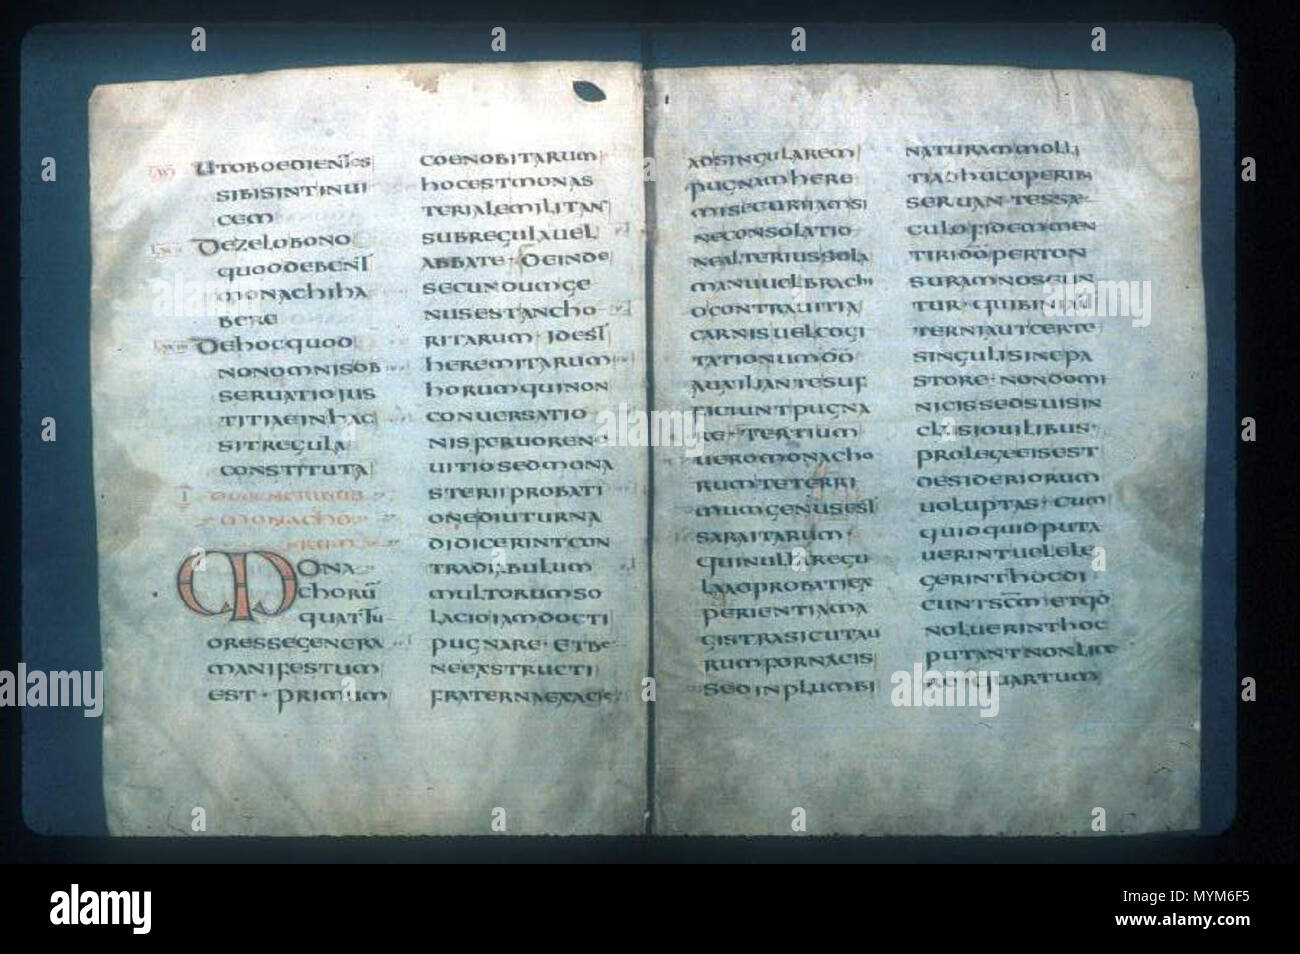 UTOBOEDIENTES
SIBISINTINUI
CEM
DEZELOBONO
QUODDEBENT
MONACHIHA
BERE
DEHOCQUOD
NONOMNISOB
SERUATIOIUS
TITIAEINHAC
SITREGULA
CONSTITUTA
MONACHO
MONA
CHORŪ
QUATTU
ORESSEGENERA
MANIFESTUM
EST · PRIMUM
COENOBITARUM
HOCESTMONAS
TERIALEMILITANS
SUBREGULAUEL
ABBATE · DEINDE
SECUNDUMGE
NUSESTANCHO
RITARUM · IDEST
HEREMITARUM
HORUMQUINON
CONUERSATIO
NISFERUORENO
UITIOSEDMONA
STERIIPROBATI
ONEDIUTURNA
DIDICERINTCON
TRADIABULUM
MULTORUMSO
LACIOIAMDOCTI
PUGNARE · ETBE
NEEXSTRUCTI
FRATERNAEXACIE
ADSINGULAREM
PUGNAMHERE
MISECURIIAMSI
NECONSOLATIO
NEALTERIUSSOLA
MANUUELBRACHI
OCONTRAUITIA
CARNISUELCOGI
TATIONUMDO
AUXILIANTESUF
FICIUNTPUGNA
RE · TERTIUM
UEROMONACHO
RUMTETERRI
MUMGENUSEST
SARAITARUM ·
QUINULLAREGU
LAADPROBATIEX
PERIENTIAMA
GISTRASICUTAU
RUMFORNACIS
SEDINPLUMBI
NATURAMMOLLI
TIADHUCOPERIB
SERUANTESSAE
CULOFIDEMMEN
TIRIDŌPERTON
SURAMNOSCUN
TUR · QUIBINIAUT
TERNIAUTCERTE
SINGULISINEPA
STORE · NONDOMI
NICISSEDSUISIN
CLUSIOUILIBUS ·
PROLEGEEISEST
DESIDERIORUM
UOLUPTAS · CUM
QUIDQUIDPUTA
UERINTUELELE
GERINTHOCDI
CUNTSCM̄ETQD
NOLUERINTHOC
PUTANTNONLICE
RE · QUARTUM
alamy
MYM6F5
www.alamy.com